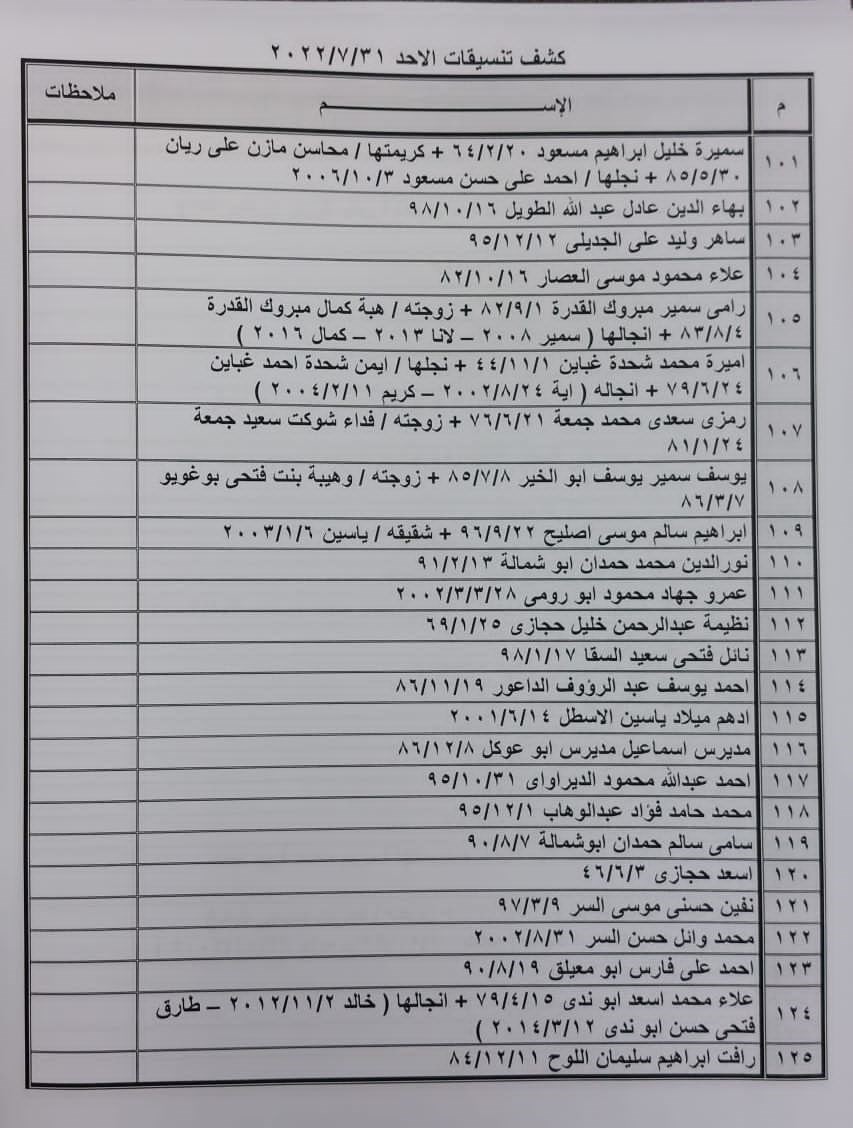 كشف تنسيقات الاحد ٢٠٢٢/٧/٣١
م الإســـــــم ملاحظات
١٠١ سميرة خليل ابراهيم مسعود ٦٤/٢/٢٠ + كريمتها / محاسن مازن على ريان
٨٥/٥/٣٠ + نجلها / احمد على حسن مسعود ٢٠٠٦/١٠/٣
١٠٢ بهاء الدين عادل عبد الله الطويل ٩٨/١٠/١٦
١٠٣ ساهر وليد على الجديلى ٩٥/١٢/١٢
١٠٤ علاء محمود موسى العصار ٨٢/١٠/١٦
١٠٥ رامى سمير مبروك القدرة ٨٢/٩/١ + زوجته / هبة كمال مبروك القدرة
٨٣/٨/٤ + انجالها ( سمير ٢٠٠٨ – لانا ٢٠١٣ – كمال ٢٠١٦ )
١٠٦ اميرة محمد شحدة غباين ٤٤/١١/١ + نجلها / ايمن شحدة احمد غباين
٧٩/٦/٢٤ + انجاله ( اية ٢٠٠٢/٨/٢٤ – كريم ٢٠٠٤/٢/١١ )
١٠٧ رمزى سعدى محمد جمعة ٧٦/٦/٢١ + زوجته / فداء شوكت سعيد جمعة
٨١/١/٢٤
١٠٨ يوسف سمير يوسف ابو الخير ٨٥/٧/٨ + زوجته / وهيبة بنت فتحى بوغويو
٨٦/٣/٧
١٠٩ ابراهيم سالم موسى اصليح ٩٦/٩/٢٢ + شقيقه / ياسين ٢٠٠٣/١/٦
١١٠ نورالدين محمد حمدان ابو شمالة ٩١/٢/١٣
١١١ عمرو جهاد محمود ابو رومى ٢٠٠٢/٣/٣/٢٨
١١٢ نظيمة عبدالرحمن خليل حجازى ٦٩/١/٢٥
١١٣ نائل فتحى سعيد السقا ٩٨/١/١٧
١١٤ احمد يوسف عبد الرؤوف الداعور ٨٦/١١/١٩
١١٥ ادهم ميلاد ياسين الاسطل ٢٠٠١/٦/١٤
١١٦ مديرس اسماعيل مديرس ابو عوكل ٨٦/١٢/٨
١١٧ احمد عبدالله محمود الديراواى ٩٥/١٠/٣١
١١٨ محمد حامد فؤاد عبدالوهاب ٩٥/١٢/١
١١٩ سامى سالم حمدان ابوشمالة ٩٠/٨/٧
١٢٠ اسعد حجازى ٤٦/٦/٣
١٢١ نفين حسنى موسى السر ٩٧/٣/٩
١٢٢ محمد وائل حسن السر ٢٠٠٢/٨/٣١
١٢٣ احمد على فارس ابو معيلق ٩٠/٨/١٩
١٢٤ علاء محمد اسعد ابو ندى ٧٩/٤/١٥ + انجالها ( خالد ٢٠١٢/١١/٢ – طارق
فتحى حسن ابو ندى ٢٠١٤/٣/١٢ )
١٢٥ رافت ابراهيم سليمان اللوح ٨٤/١٢/١١